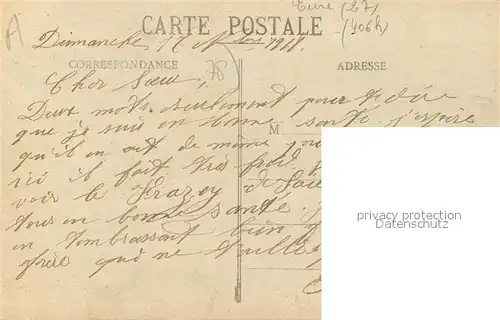 Eure (27)
A
CARTE POSTALE
(406h)
Dimanche 17 9bre 1918.
CORRESPONDANCE
78
ADRESSE
Cher Soeur,
Deux mots seulement pour te dire
que je suis en bonne santé j'espère
M
qu'il en est de même pour
ici il fait très froid
voir le Frazey de
tous en bonne santé.
en t'embrassant bien
frère qui ne t'oublie
privacy protection
Datenschutz